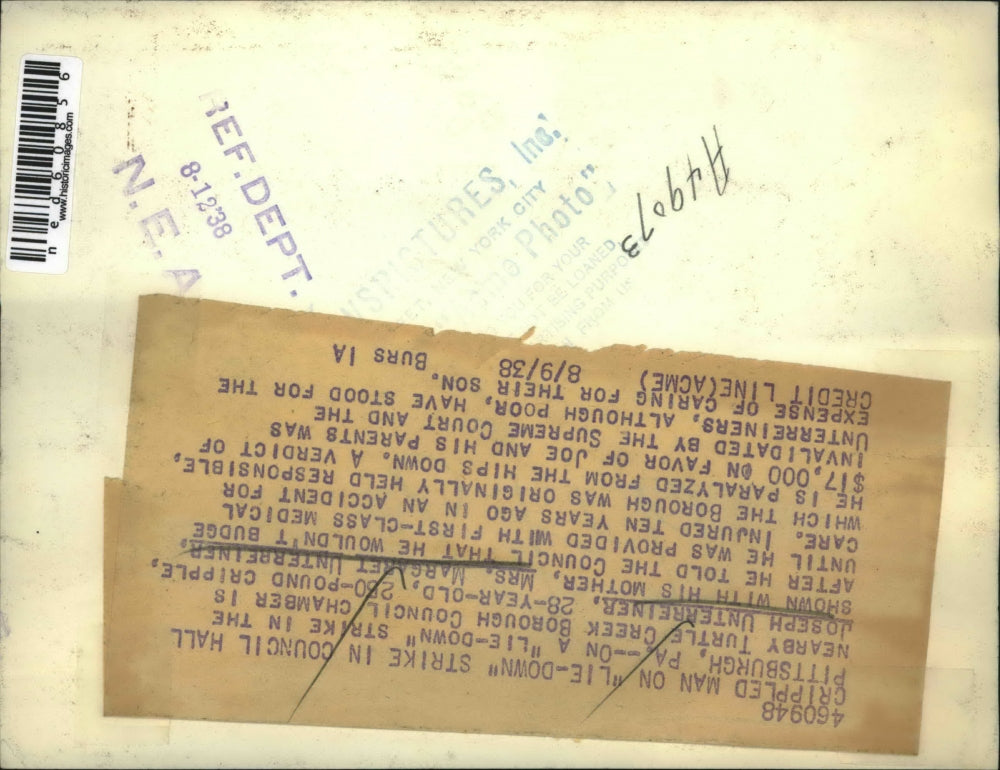 ned60856
www.historicimages.com
REF. DEPT.
8-12'38
N. E. A
PICTURES, Inc.
YORK CITY
Photo"
FOR YOUR
LOANED
FROM US
A49073
460948
CRIPPLED MAN ON "LIE-DOWN" STRIKE IN COUNCIL HALL
PITTSBURGH, PA.--ON A "LIE-DOWN" STRIKE IN THE
NEARBY TURTLE CREEK BOROUGH COUNCIL CHAMBER IS
JOSEPH UNTERREINER, 28-YEAR-OLD, POUND CRIPPLE,
SHOWN WITH HIS MOTHER, MRS. MARGARET UNTERREINER,
AFTER HE TOLD THE COUNCIL THAT HE WOULDN'T BUDGE
UNTIL HE WAS PROVIDED WITH FIRST-CLASS MEDICAL
CARE. INJURED TEN YEARS AGO IN AN ACCIDENT FOR
WHICH THE BOROUGH WAS ORIGINALLY HELD RESPONSIBLE,
HE IS PARALYZED FROM THE HIPS DOWN. A VERDICT OF
$17,000 ON FAVOR OF JOE AND HIS PARENTS WAS
INVALIDATED BY THE SUPREME COURT AND THE
UNTERREINERS, ALTHOUGH POOR, HAVE STOOD FOR THE
EXPENSE OF CARING FOR THEIR SON.
CREDIT LINE(ACME) 8/9/38 BURS IA